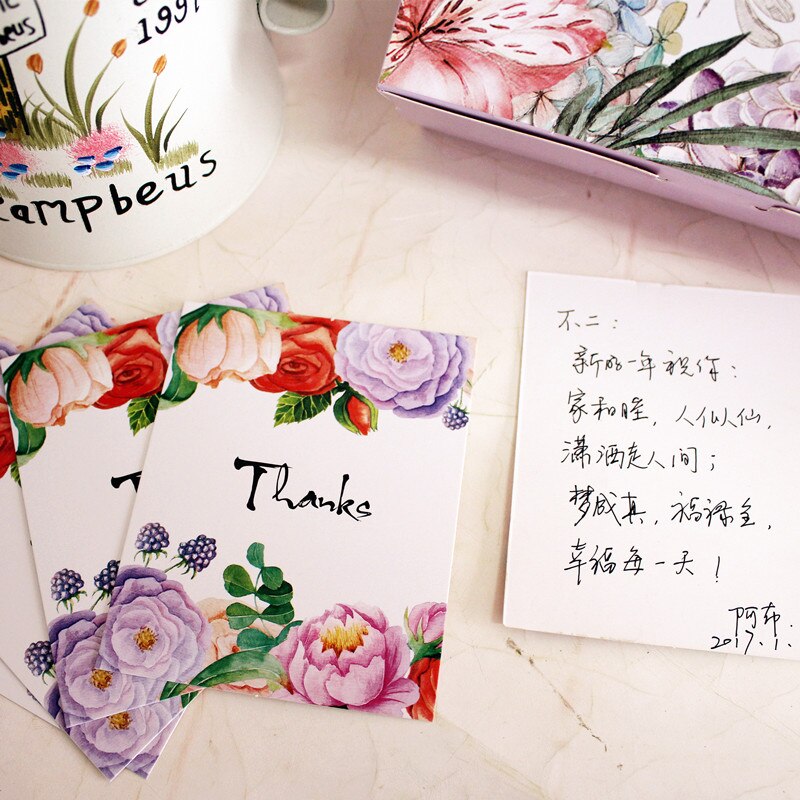 1997
Campbeus
Thanks
不二：
新的一年祝你：
家和睦，人仙仙，
潇洒走人间；
梦成真，福禄全，
幸福每一天！
阿布
2017.1.